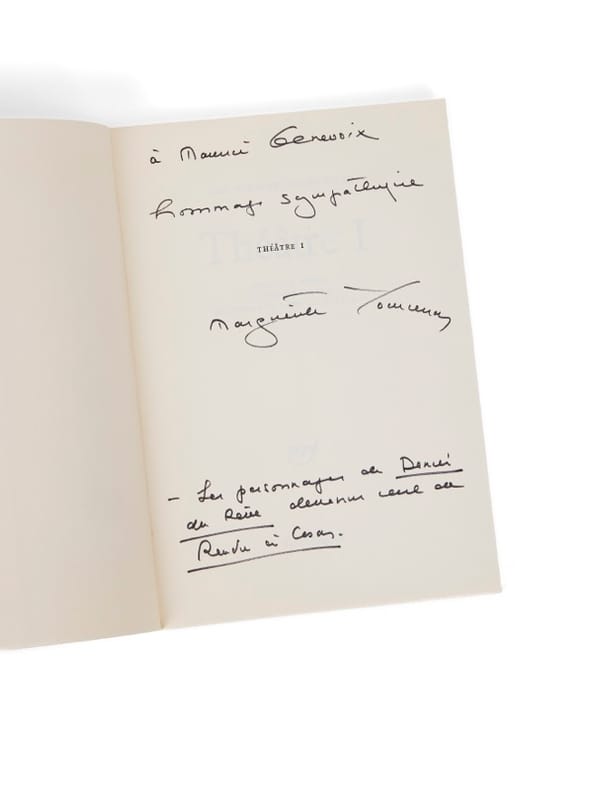 à Maurice Genevoix
hommage sympathique
THÉÂTRE I
Marguerite Yourcenar
— Les personnages de Denier
du Rêve devenus ceux de
Rendre à César.